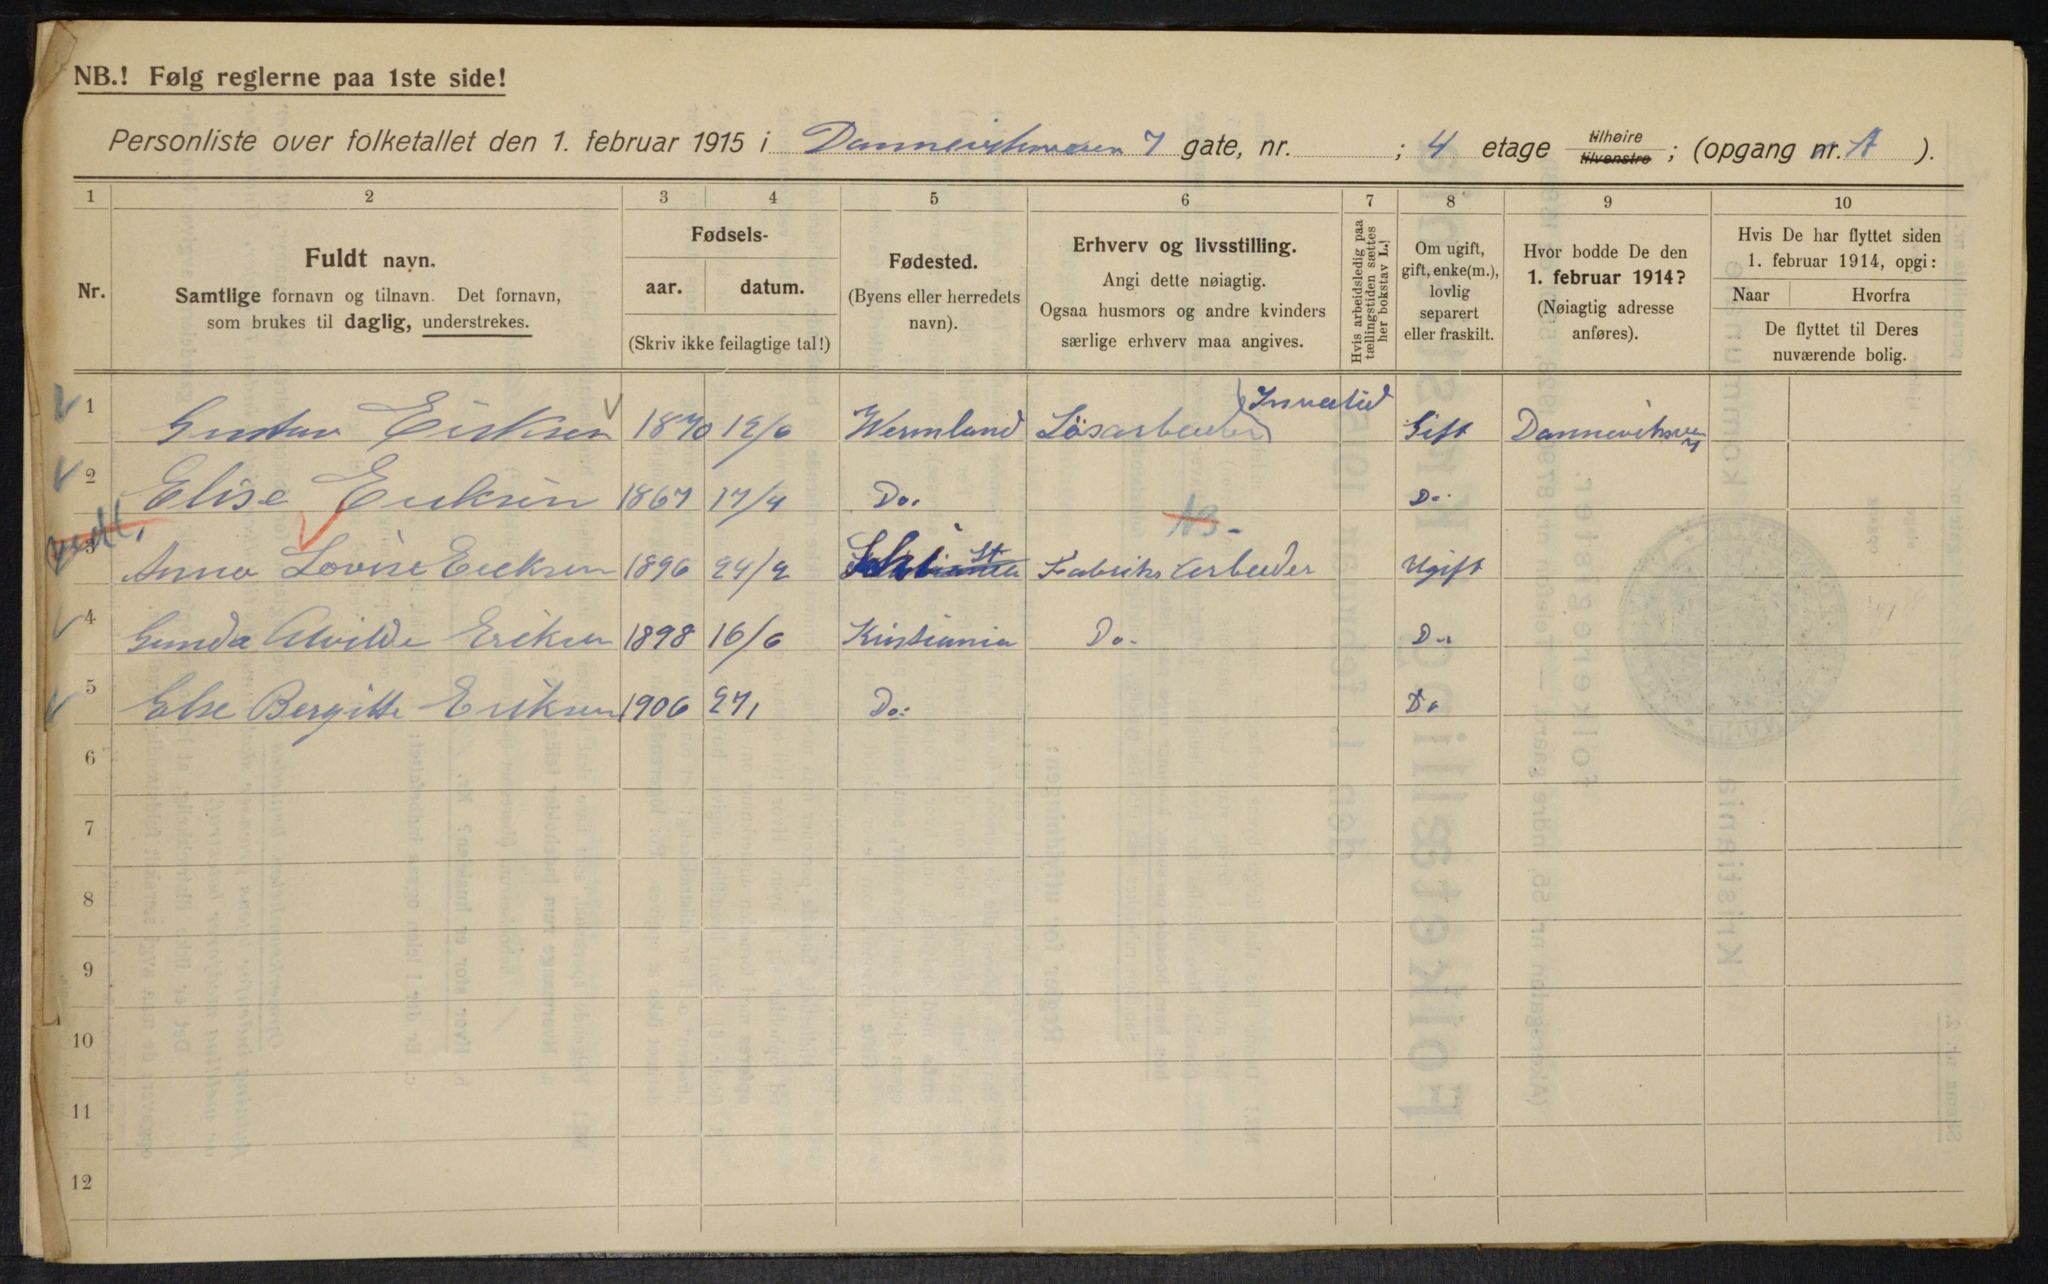 NB.! Følg reglerne paa 1ste side!
Personliste over folketallet den 1. februar 1915 i Dannevirksveien 7 gate, nr. ; 4 etage tilhøire tilvenstre ; (opgang nr. A ).
1 2 3 4 5 6 7 8 9 10
Nr.
Fuldt navn.
Samtlige fornavn og tilnavn. Det fornavn,
som brukes til daglig, understrekes.
Fødsels-
aar. datum.
(Skriv ikke feilagtige tal!)
Fødested.
(Byens eller herredets
navn).
Erhverv og livsstilling.
Angi dette nøiagtig.
Ogsaa husmors og andre kvinders
særlige erhverv maa angives.
Hvis arbeidsledig paa
tællingstiden sættes
her bokstav L.!
Om ugift,
gift, enke(m.),
lovlig
separert
eller fraskilt.
Hvor bodde De den
1. februar 1914?
(Nøiagtig adresse
anføres).
Hvis De har flyttet siden
1. februar 1914, opgi:
Naar Hvorfra
De flyttet til Deres
nuværende bolig.
1 Gustav Eriksen 1870 12/6 Wermland Løsarbeider (Invalid) Gift Dannevirksvei 7
2 Elise Eriksen 1867 17/4 Do. Do.
3 Anna Lovise Eriksen 1896 24/2 Fabriks Arbeider Ugift
4 Gunda Alvilde Eriksen 1898 16/6 Kristiania Do. Do.
5 Else Bergitte Eriksen 1906 27/1 Do. Do
6
7
8
9
10
11
12